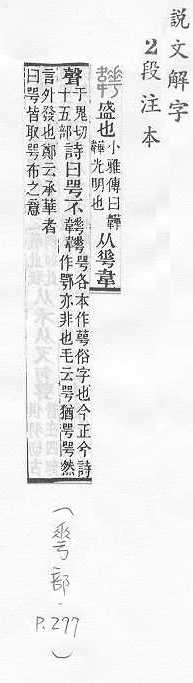 説文解字
2段注本
盛也小雅傳曰韡韡光明也从𠌶韋
聲于鬼切十五部詩曰咢不韡韡咢各本作萼俗字也今正今詩作鄂亦非也毛云咢猶咢咢然
言外發也鄭云承華者曰咢皆取咢布之意
(𠌶部.P.277)